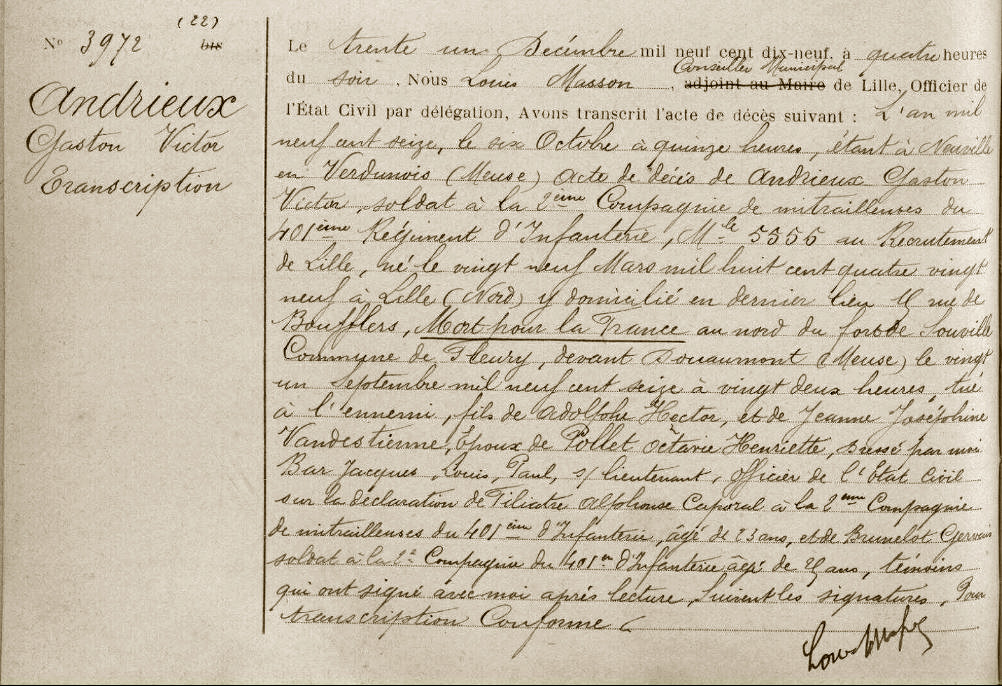 (22)
N° 3972 bis
Andrieux
Gaston Victor
Transcription
Le trente un Décembre mil neuf cent dix-neuf, à quatre heures
Conseiller Municipal
du soir, Nous Louis Masson, adjoint au Maire de Lille, Officier de
l'État Civil par délégation, Avons transcrit l'acte de décès suivant : L'an mil
neuf cent seize, le six Octobre à quinze heures, étant à Neuville
en Verdunois (Meuse) Acte de décès de Andrieux Gaston
Victor, soldat à la 2ème Compagnie de mitrailleuses du
401ème Régiment d'Infanterie, Mle 5355 au Recrutement
de Lille, né le vingt neuf Mars mil huit cent quatre vingt
neuf à Lille (Nord) y domicilié en dernier lieu rue de
Boufflers, Mort pour la France au nord du fort de Souville
Commune de Fleury, devant Douaumont (Meuse) le vingt
un Septembre mil neuf cent seize à vingt deux heures, tué
à l'ennemi, fils de Adolphe Hector, et de Jeanne Joséphine
Vandestienne, Époux de Pollet Octavie Henriette, Dressé par moi
Bar Jacques, Louis, Paul, s/ lieutenant, Officier de l'État Civil
sur la déclaration de Filiatre Alphonse Caporal à la 2ème Compagnie
de mitrailleuses du 401ème d'Infanterie, âgé de 23 ans, et de Brunelot Gervais
soldat à la 2e Compagnie du 401em d'Infanterie âgé de ans, témoins
qui ont signé avec moi après lecture, Suivent les signatures, Pour
transcription Conforme